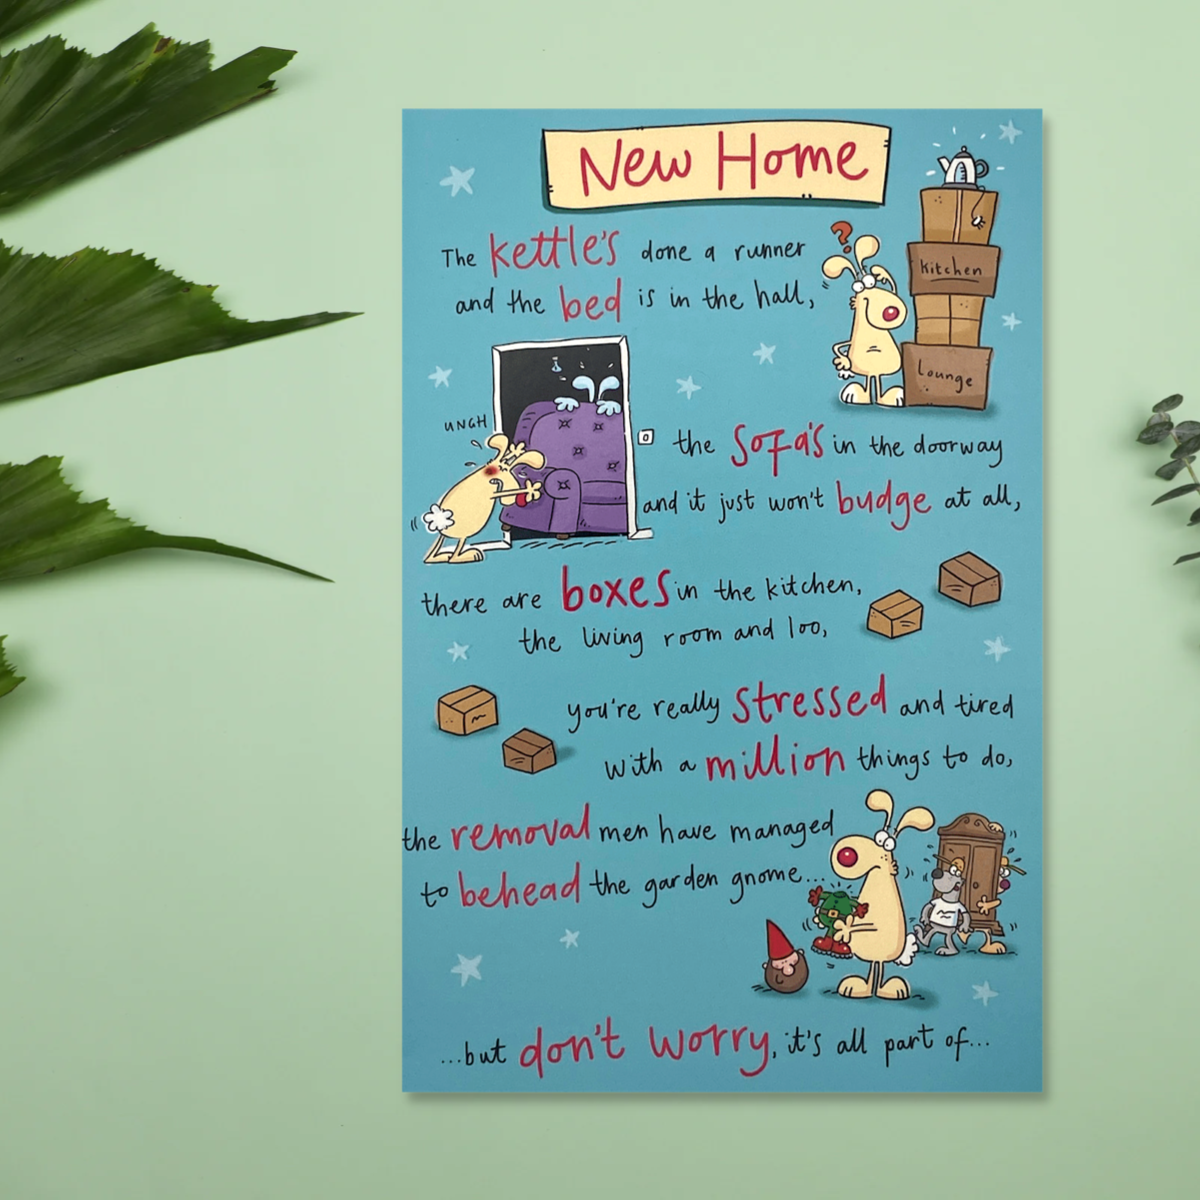 New Home
The kettle's done a runner
and the bed is in the hall,
Kitchen
Lounge
UNGH
the sofa's in the doorway
and it just won't budge at all,
there are boxes in the kitchen,
the living room and loo,
you're really stressed and tired
with a million things to do,
the removal men have managed
to behead the garden gnome...
...but don't worry, it's all part of...